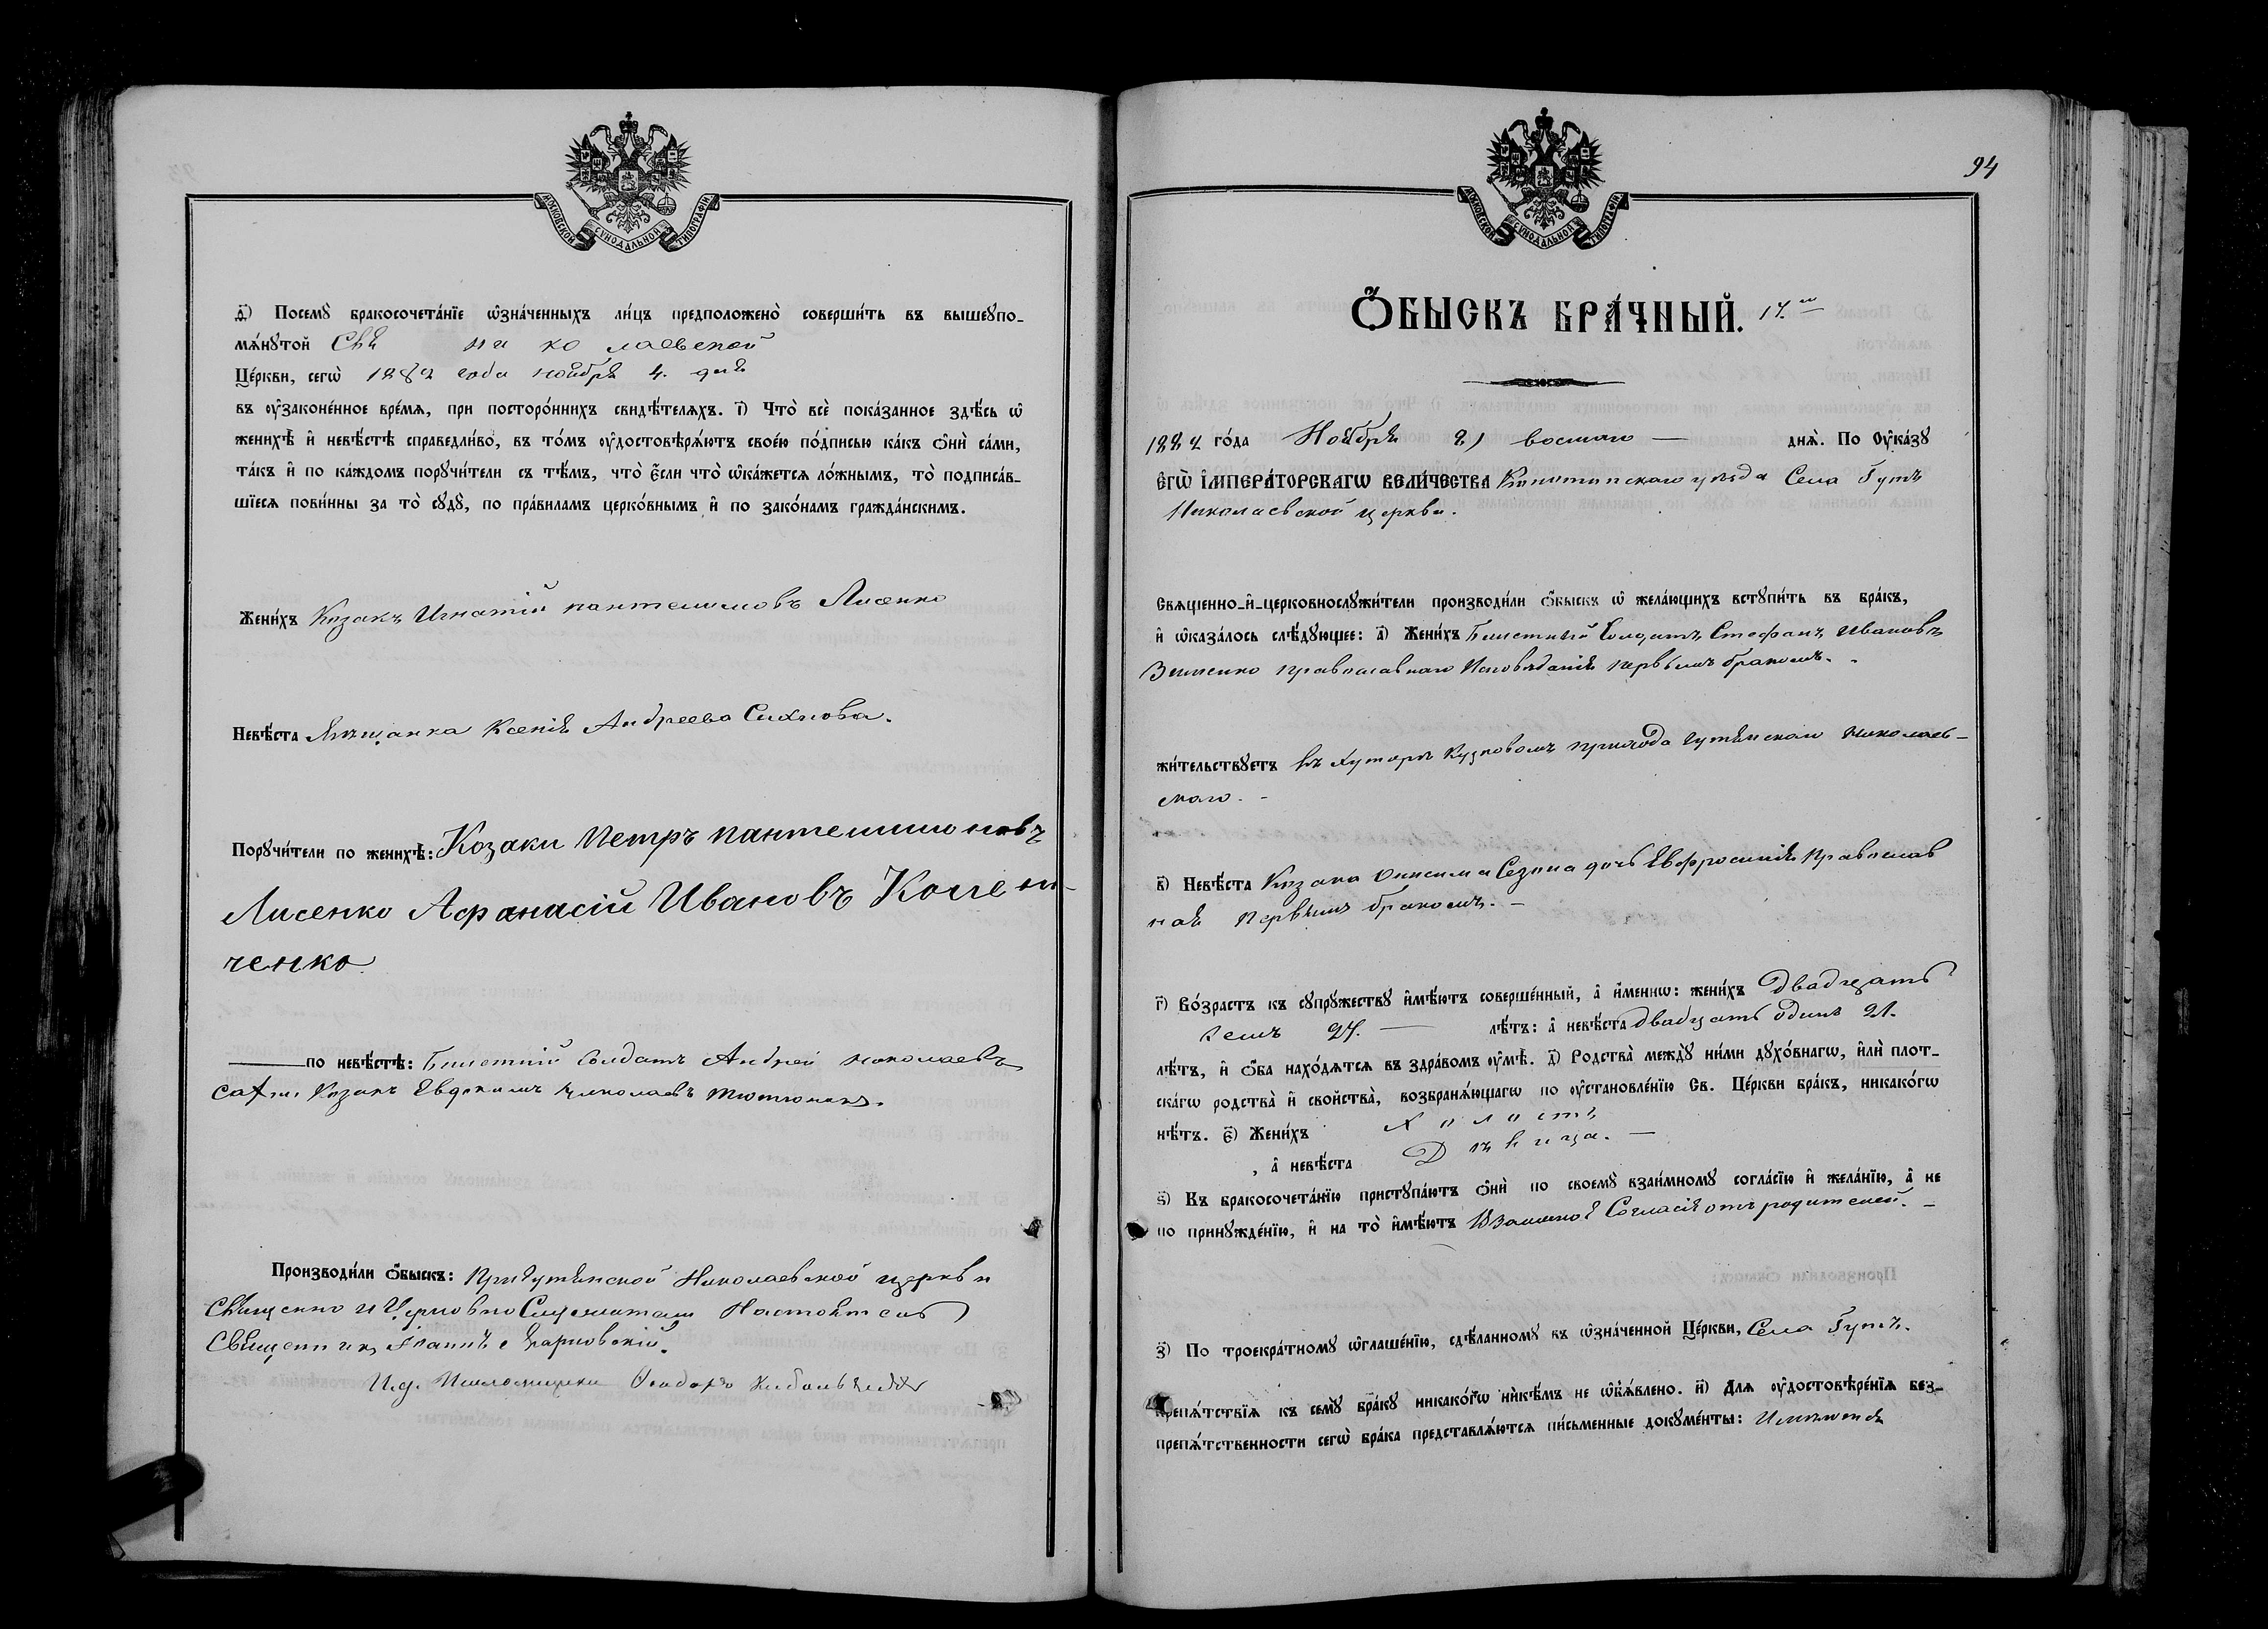 МОСКОВСКОЙ СѴНОДАЛЬНОЙ ТИПОГРАФІИ
д҃) Посемꙋ̀ бракосочета́нїе ѡ҆зна́ченныхъ ли́цъ предположено̀ соверши́ть въ вышеꙋпо-
мѧ́нꙋтой Свя николаевской
Це́ркви, сегѡ̀ 1882 года ноября 4. дня
въ ᲂу҆законе́нное вре́мѧ, при посторо́ннихъ свидѣ́телѧхъ. і҃) Что̀ всѐ пока́занное здѣ́сь ѡ҆
женихѣ̀ и҆ невѣ́стѣ справедли́во, въ то́мъ ᲂу҆достовѣрѧ́ютъ свое́ю по́дписью ка́къ ѻ҆нѝ са́ми,
та́къ и҆ по ка́ждомъ порꙋчи́тели съ тѣ́мъ, что̀ є҆́сли что̀ ѡ҆ка́жетсѧ ло́жнымъ, то̀ подписа́в-
шїесѧ пови́нны за то̀ сꙋдꙋ̀, по пра́виламъ церко́внымъ и҆ по зако́намъ гражда́нскимъ.
Жени́хъ Козакъ Игнатій пантелимовъ Лисенко
Невѣ́ста Мѣщанка Ксенія Андреева
Порꙋчи́тели по женихѣ̀: Козаки Петръ пантелимоновъ
Лисенко Афанасій Ивановъ
ченко
по невѣ́стѣ: Билетній Солдатъ Андрей николаевъ
Козакъ Евдокимъ николаевъ Тютюнокъ.
Производи́ли ѻ҆́быскъ: При Гутянской Николаевской церкви
Священно и Церковно Служители Настоятель
Священникъ
И.д. Псаломщика Феодоръ
94
МОСКОВСКОЙ СѴНОДАЛЬНОЙ ТИПОГРАФІИ
Ѻ҆́БЫСКЪ БРА́ЧНЫЙ. 17.й
1882 го́да Ноября 8) восмаго днѧ̀. По ᲂу҆ка́зꙋ
Є҆ГѠ̀ І҆МПЕРА́ТОРСКАГѠ ВЕЛИ́ЧЕСТВА Конотопскаго уѣзда Села Гутъ
Николаевской церкви.
Свѧще́нно-и҆-церковнослꙋжи́тели производи́ли ѻ҆́быскъ ѡ҆ жела́ющихъ встꙋпи́ть въ бра́къ,
и҆ ѡ҆каза́лось слѣ́дꙋющее: а҃) Жени́хъ Билетный Солдатъ Стефанъ Ивановъ
Зименко православнаго Исповѣданія первымъ бракомъ.
жи́тельствꙋетъ въ Хуторѣ прихода Гутянскаго Николаев-
скаго.
в҃) Невѣ́ста Козака Онисима Сезона дочь Евфросинія Православ
ная Первымъ бракомъ.
г҃) Во́зрастъ къ сꙋпрꙋ́жествꙋ и҆мѣ́ютъ соверше́нный, а҆ и҆́меннѡ: жени́хъ Двадцать
семъ 27. лѣ́тъ: а҆ невѣ́ста двадцать одинъ 21.
лѣ́тъ, и҆ ѻ҆́ба нахо́дѧтсѧ въ здра́вомъ ᲂу҆мѣ̀. д҃) Родства̀ междꙋ̀ ни́ми дꙋхо́внагѡ, и҆лѝ плот-
ска́гѡ родства̀ и҆ сво́йства̀, возбранѧ́ющагѡ по ᲂу҆становле́нїю Св. Це́ркви бра́къ, никако́гѡ
нѣ́тъ. є҃) Жени́хъ Холостъ
, а҆ невѣ́ста Дѣвица.
ѕ҃) Къ бракосочета́нїю пристꙋпа́ютъ ѻ҆нѝ по своемꙋ̀ взаи́мномꙋ согла́сїю и҆ жела́нїю, а҆ не
по принꙋжде́нїю, и҆ на то̀ и҆мѣ́ютъ Взаимное Согласія отъ родителей.
з҃) По троекра́тномꙋ ѡ҆глаше́нїю, сдѣ́ланномꙋ въ ѡ҆зна́ченной Це́ркви, Села Гутъ.
препѧ́тствїѧ къ семꙋ̀ бра́кꙋ никако́гѡ нѝкѣ́мъ не ѡ҆б̾ѧ́влено. и҃) Для ᲂу҆достовѣре́нїѧ без-
препѧ́тственности сегѡ̀ бра́ка представлѧ́ютсѧ пи́сьменные докꙋме́нты: Имѣются